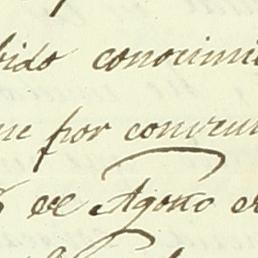 bido conocimi
ue por conven
de Agosto de